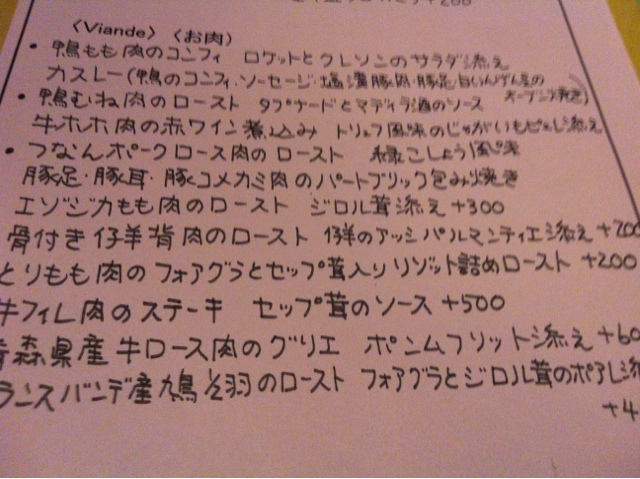 +200
〈Viande〉〈お肉〉
• 鴨もも肉のコンフィ ロケットとクレソンのサラダ添え
カスレー(鴨のコンフィ・ソーセージ・塩漬豚肉・豚足・白いんげん豆のオーブン焼き)
• 鴨むね肉のロースト タプナードとマディラ酒のソース
牛ホホ肉の赤ワイン煮込み トリュフ風味のじゃがいもピュレ添え
• つなんポークロース肉のロースト 緑こしょう風味
豚足・豚耳・豚コメカミ肉のパートブリック包み焼き
エゾジカもも肉のロースト ジロル茸添え +300
骨付き仔羊背肉のロースト 仔羊のアッシパルマンティエ添え +200
とりもも肉のフォアグラとセップ茸入りリゾット詰めロースト +200
牛フィレ肉のステーキ セップ茸のソース +500
青森県産牛ロース肉のグリエ ポンムフリット添え +60
ランスバンデ産鳩1/2羽のロースト フォアグラとジロル茸のポアレ添
+4